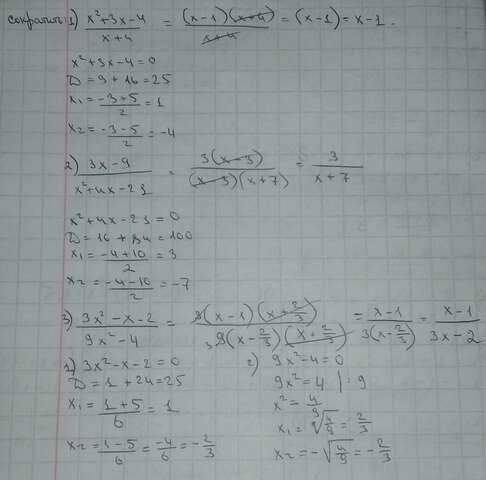 сократить: 1) x²+3x-4 / x+4 = (x-1)(x+4) / x+4 = (x-1) = x-1.
x²+3x-4=0
D=9+16=25
x₁=-3+5/2=1
x₂=-3-5/2=-4
2) 3x-9 / x²+4x-21 = 3(x-3) / (x-3)(x+7) = 3 / x+7
x²+4x-21=0
D=16+84=100
x₁=-4+10/2=3
x₂=-4-10/2=-7
3) 3x²-x-2 / 9x²-4 = 3(x-1)(x+2/3) / 3 9(x-2/3)(x+2/3) = x-1 / 3(x-2/3) = x-1 / 3x-2
1) 3x²-x-2=0
D=1+24=25
x₁=1+5/6=1
x₂=1-5/6=-4/6=-2/3
2) 9x²-4=0
9x²=4 |:9
x²=4/9
x₁=√4/9=2/3
x₂=-√4/9=-2/3